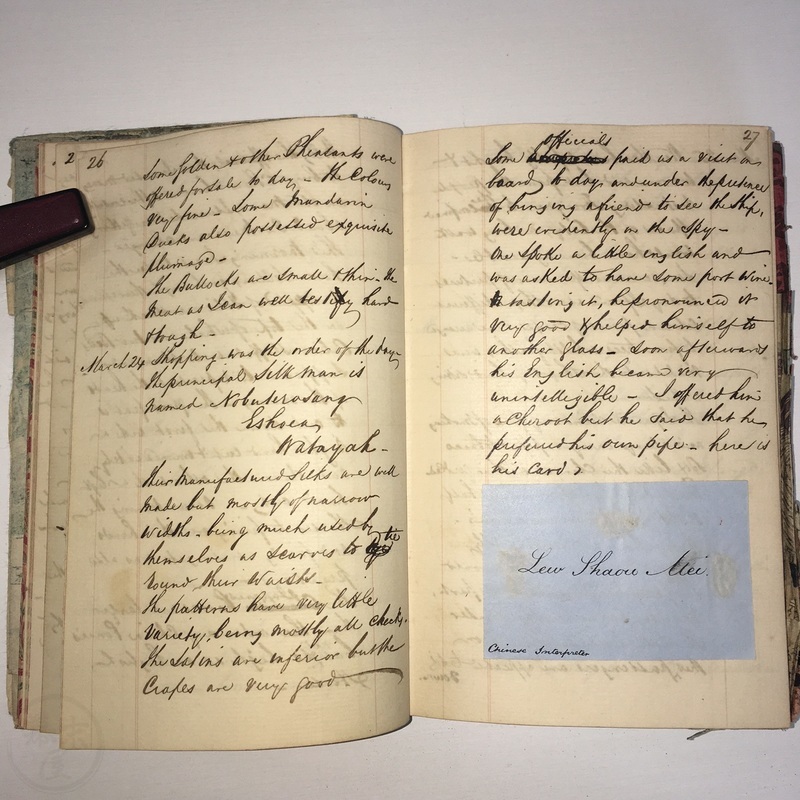 2 26
Some Golden & other Pheasants were
offered for sale to day - the Colours
very fine - Some Mandarin
Ducks also possessed exquisite
plumage -
The Bullocks are small & thin - the
meat as I can well testify hard
& tough -
March 24 Shopping was the order of the day -
the principal Silk man is
named Nobuterasang
Eshoea
Watayah -
Their manufactured Silks are well
made but mostly of narrow
widths - being much used by
themselves as Scarves to tie
round their Waists -
The patterns have very little
Variety, being mostly all checks.
The Satins are inferior but the
Crapes are very good
27
officials
Some paid us a visit on
board to day, and under the pretence
of bringing a friend to see the Ship,
were evidently on the Spy -
One Spoke a little english and
was asked to have some port wine -
tasting it, he pronounced it
very good & helped himself to
another glass - Soon afterwards
his English became very
unintelligible - I offered him
a Cheroot but he said that he
preferred his own pipe - here is
his Card
Lew Shaou Mei.
Chinese Interpreter